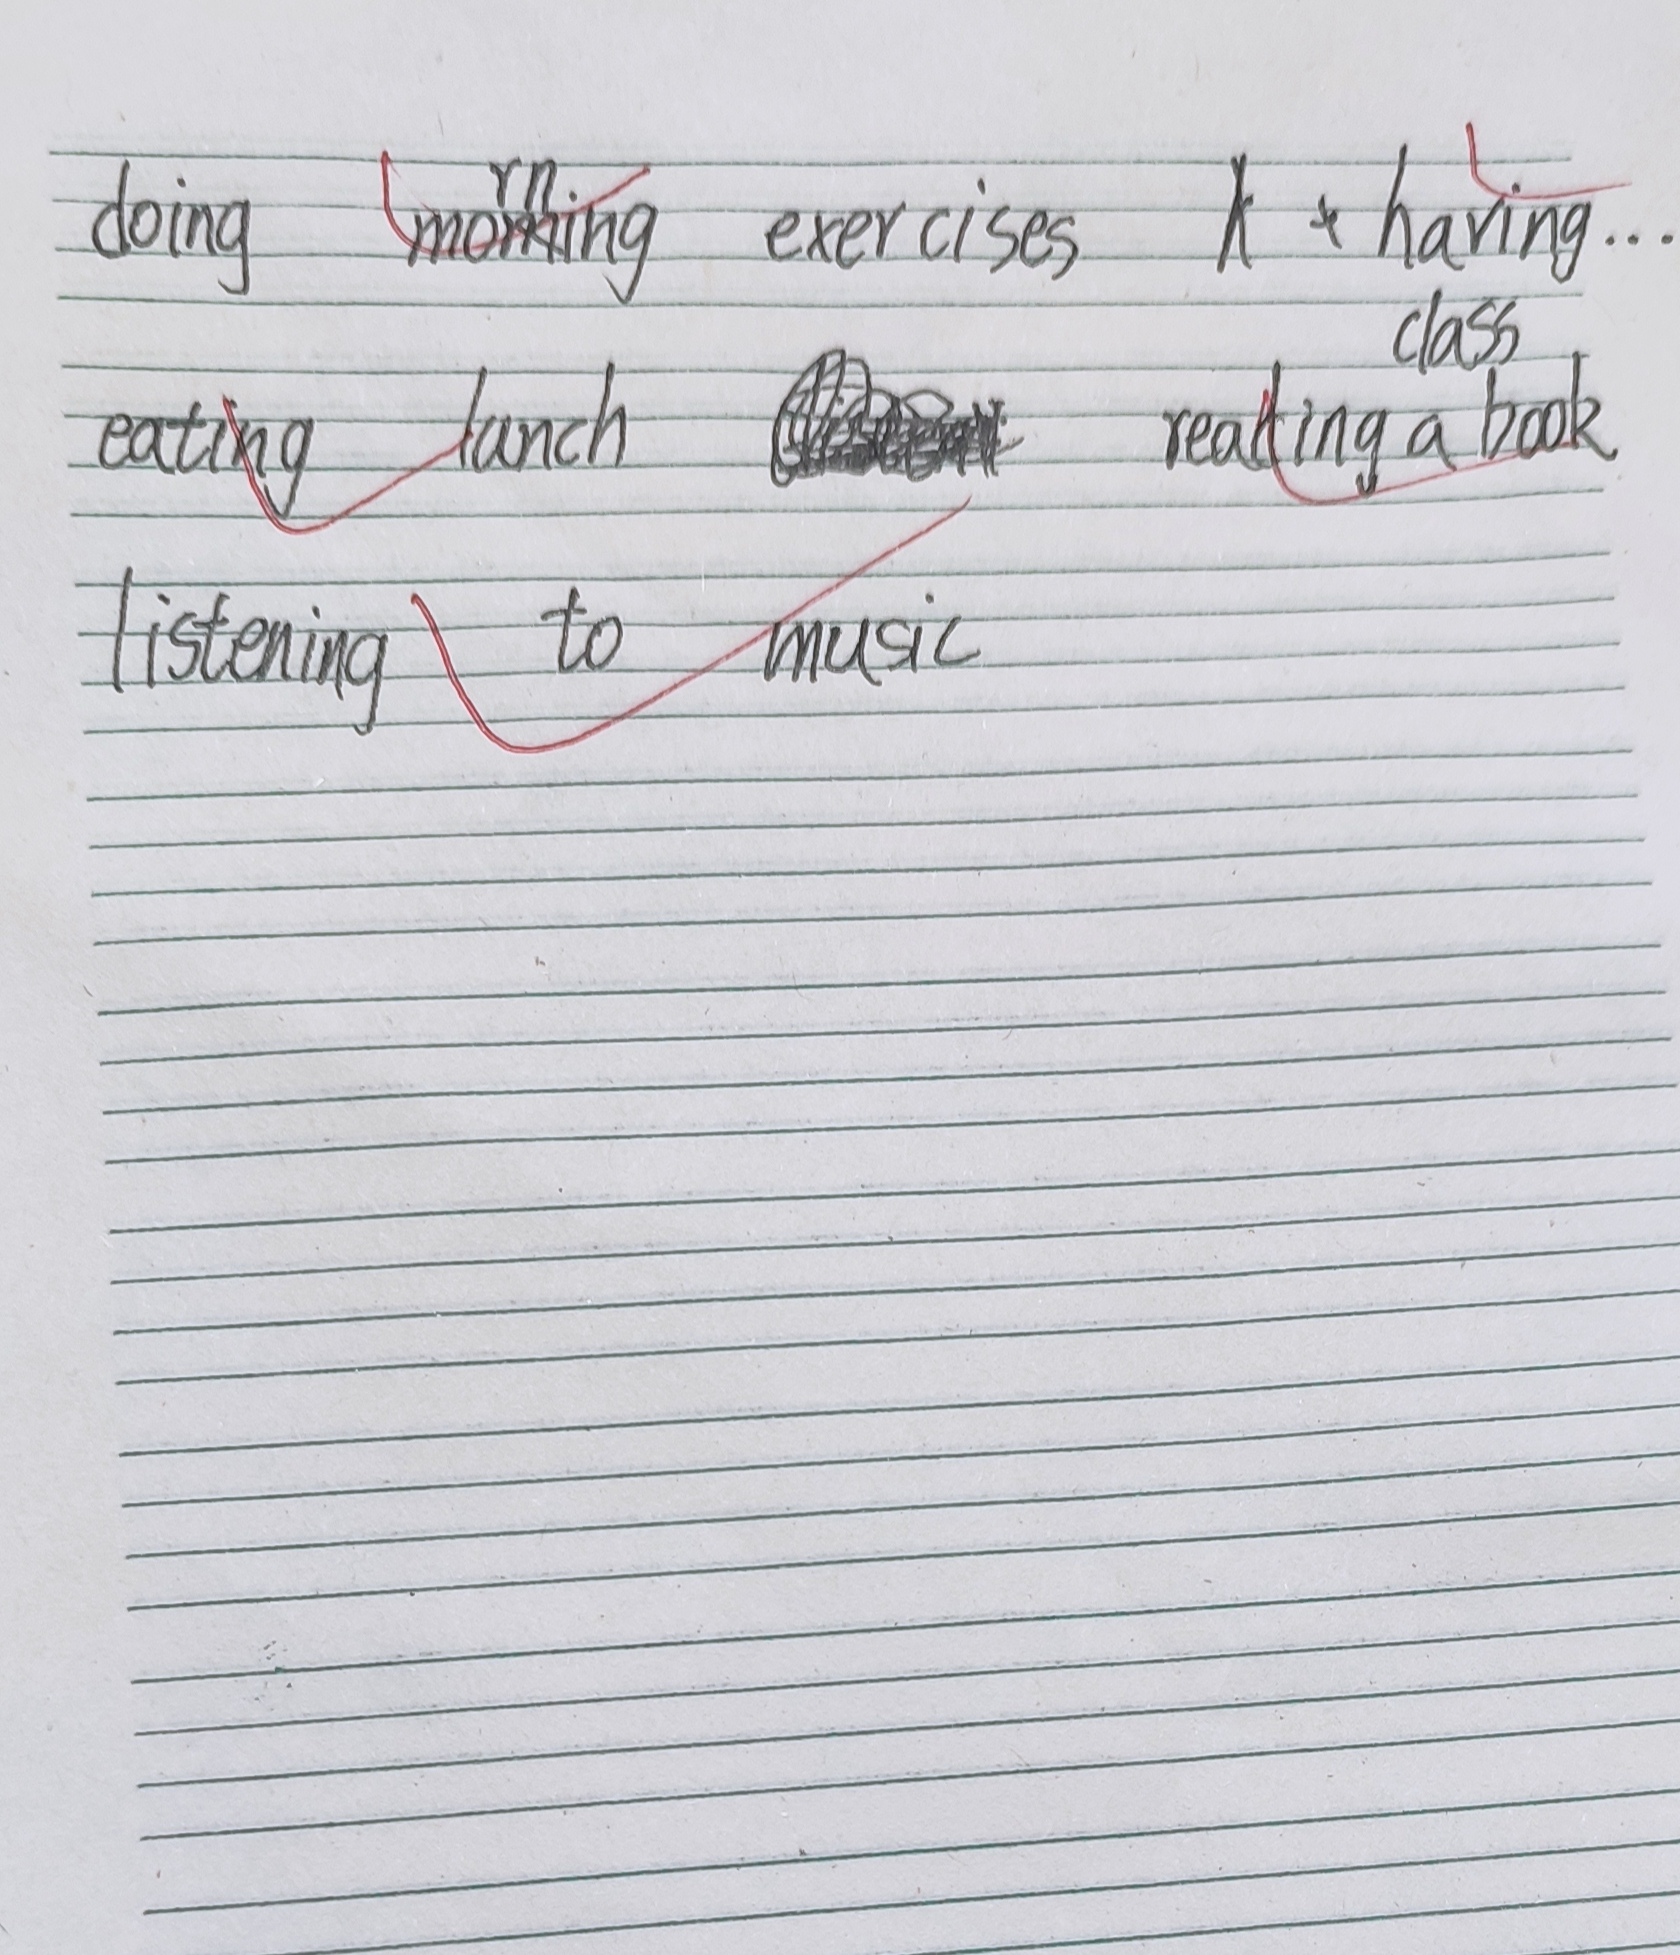 doing morning exercises + having...
class
eating lunch reading a book
listening to music